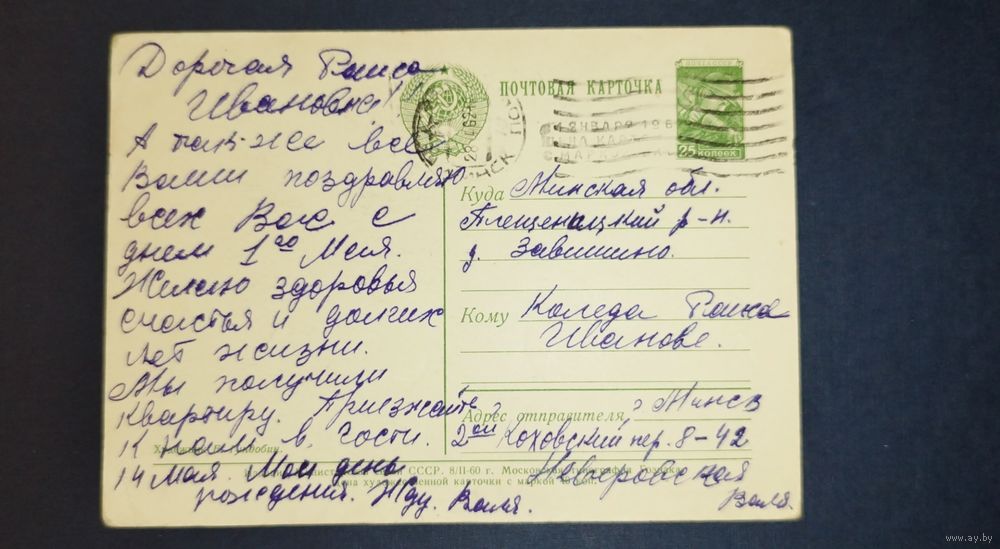 Дорогая Раиса
Ивановна!
А так-же все
Ваши поздравляю
всех Вас с
днем 1го Мая.
Желаю здоровья
счастья и долгих
лет жизни.
Мы получили
квартиру. Приезжайте
к нам в гости.
14 мая. Мой день
рождения. Жду. Валя.
ПОЧТОВАЯ КАРТОЧКА
ПОЧТА СССР
25 КОПЕЕК
1 ЯНВАРЯ 196
ЦЕНА КАРТ
С МАРКО
Куда Минская обл.
Плещеницкий р-н.
д. Завишино.
Кому Коледа Раиса
Ивановне.
Адрес отправителя, г. Минск
2ой Коховский пер. 8-42
Валя.
Художник
СССР. 8/II-60 г. Московская
Цена художественной карточки с маркой
www.ay.by